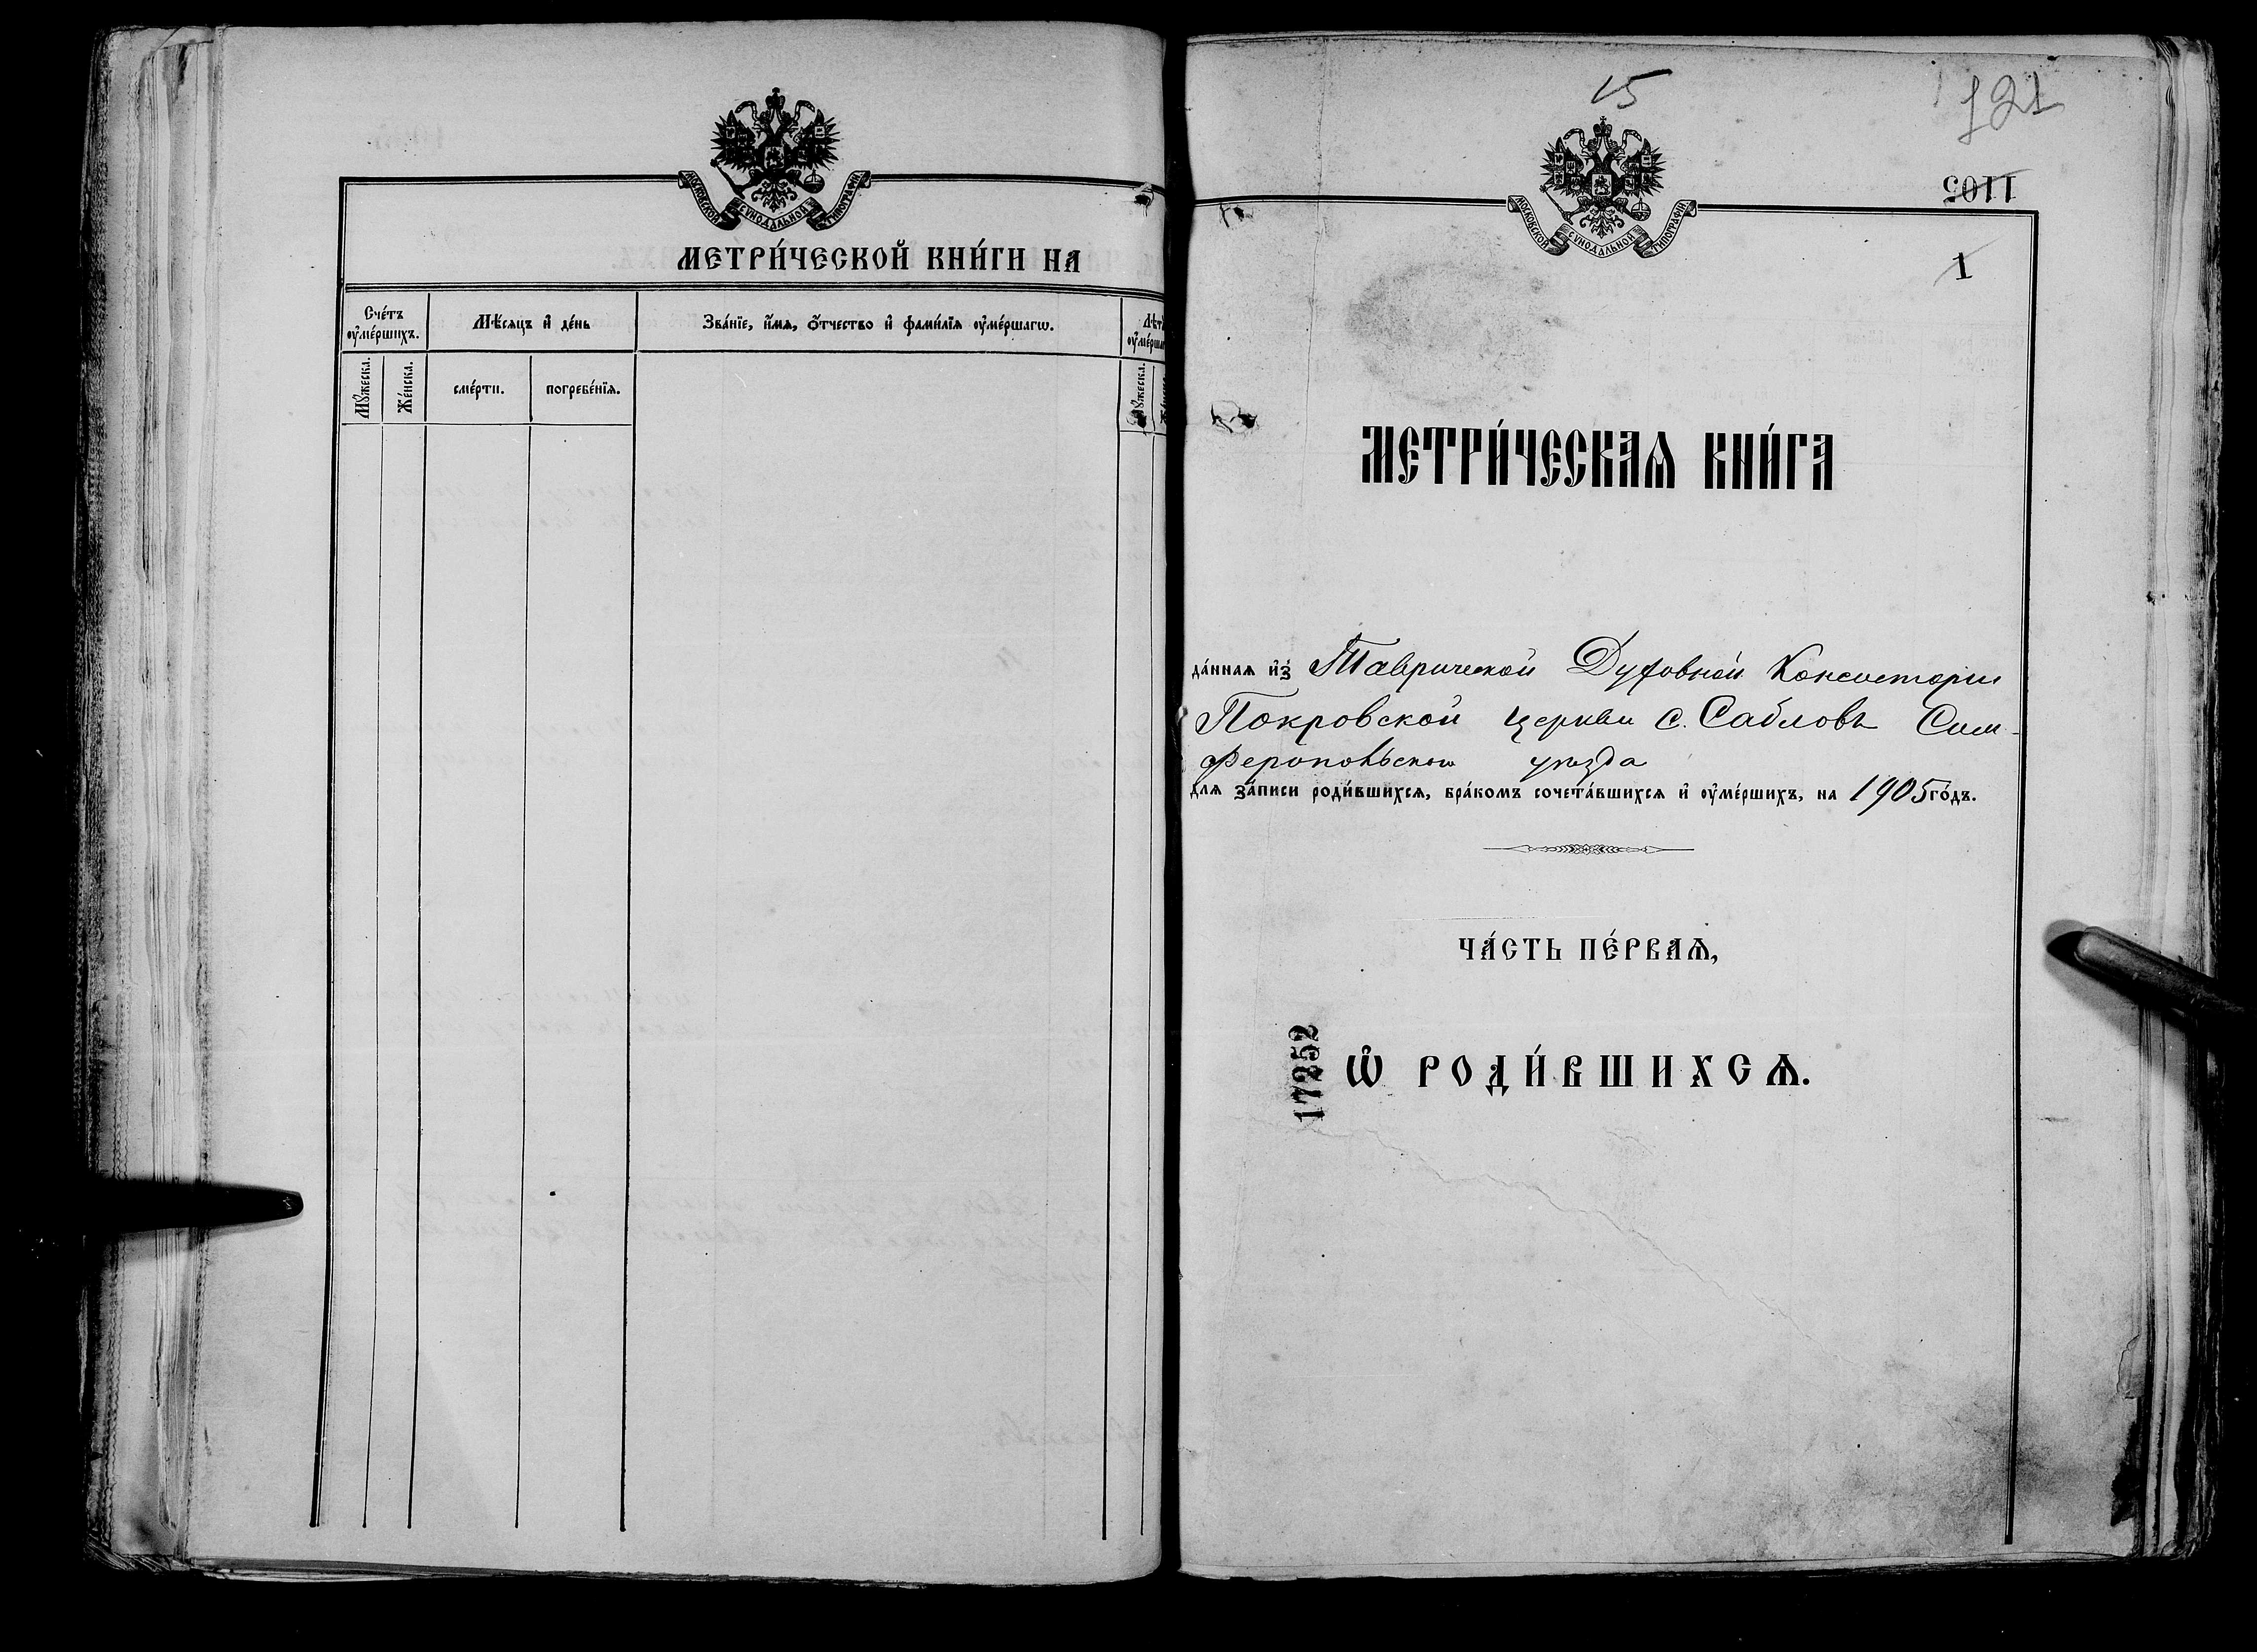 МОСКОВСКОЙ СѴНОДАЛЬНОЙ ТИПОГРАФІИ
МЕТРИ́ЧЕСКОЙ КНИ́ГИ НА
Сче́тъ ᲂу҆ме́ршихъ.
Мѣ́сяцъ и҆ де́нь
Зва́нїе, и҆́мѧ, ѻ҆́тчество и҆ фами́лїѧ ᲂу҆ме́ршагѡ.
Лѣт
ᲂу҆ме́рша
Мꙋ́жеска.
Же́нска.
сме́рти.
погребе́нїѧ.
Мꙋ́жеска.
15
121
1105
МОСКОВСКОЙ СѴНОДАЛЬНОЙ ТИПОГРАФІИ
1
МЕТРИ́ЧЕСКАѦ КНИ́ГА
да́ннаѧ и҆з̾ Таврической Духовной Консистории
Покровской церкви с. Сабловъ Сим-
феропольскаго уѣзда
для за́писи роди́вшихсѧ, бра́комъ сочета́вшихсѧ и҆ ᲂу҆ме́ршихъ, на 1905 го́дъ.
ЧА́СТЬ ПЕ́РВАѦ,
17252
Ѽ РОДИ́ВШИХСѦ.